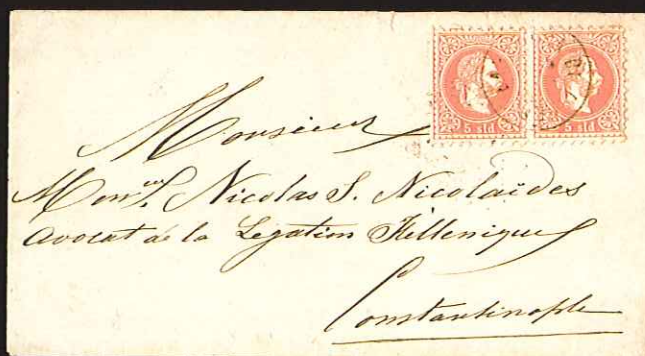 5 sld 5 sld
Monsieur
Monsr. Nicolas S. Nicolaïdes
Avocat de la Legation Hellenique
Constantinople